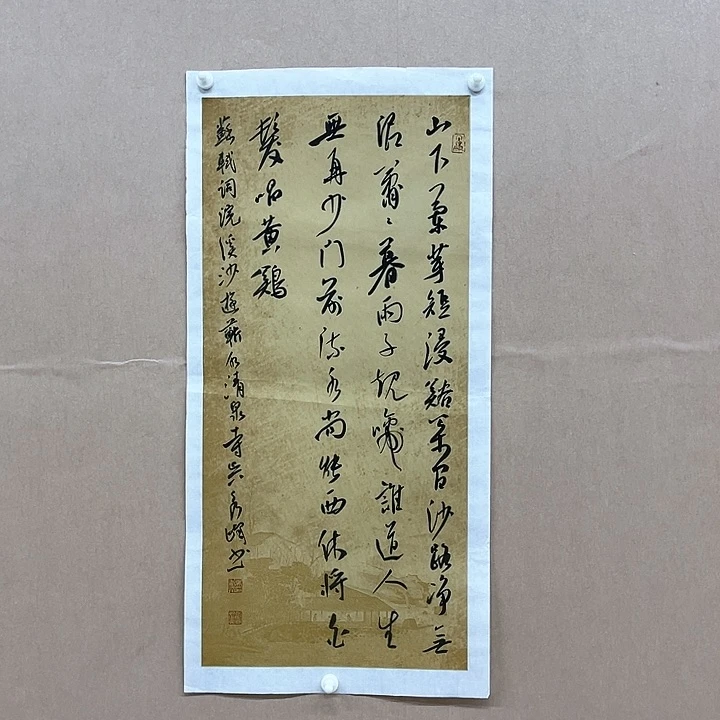 山下蘭芽短浸谿松間沙路淨無
泥蕭々暮雨子規啼誰道人生
無再少門前流水尚能西休將白
髮唱黃鷄
蘇軾詞浣溪沙遊蘄水清泉寺书